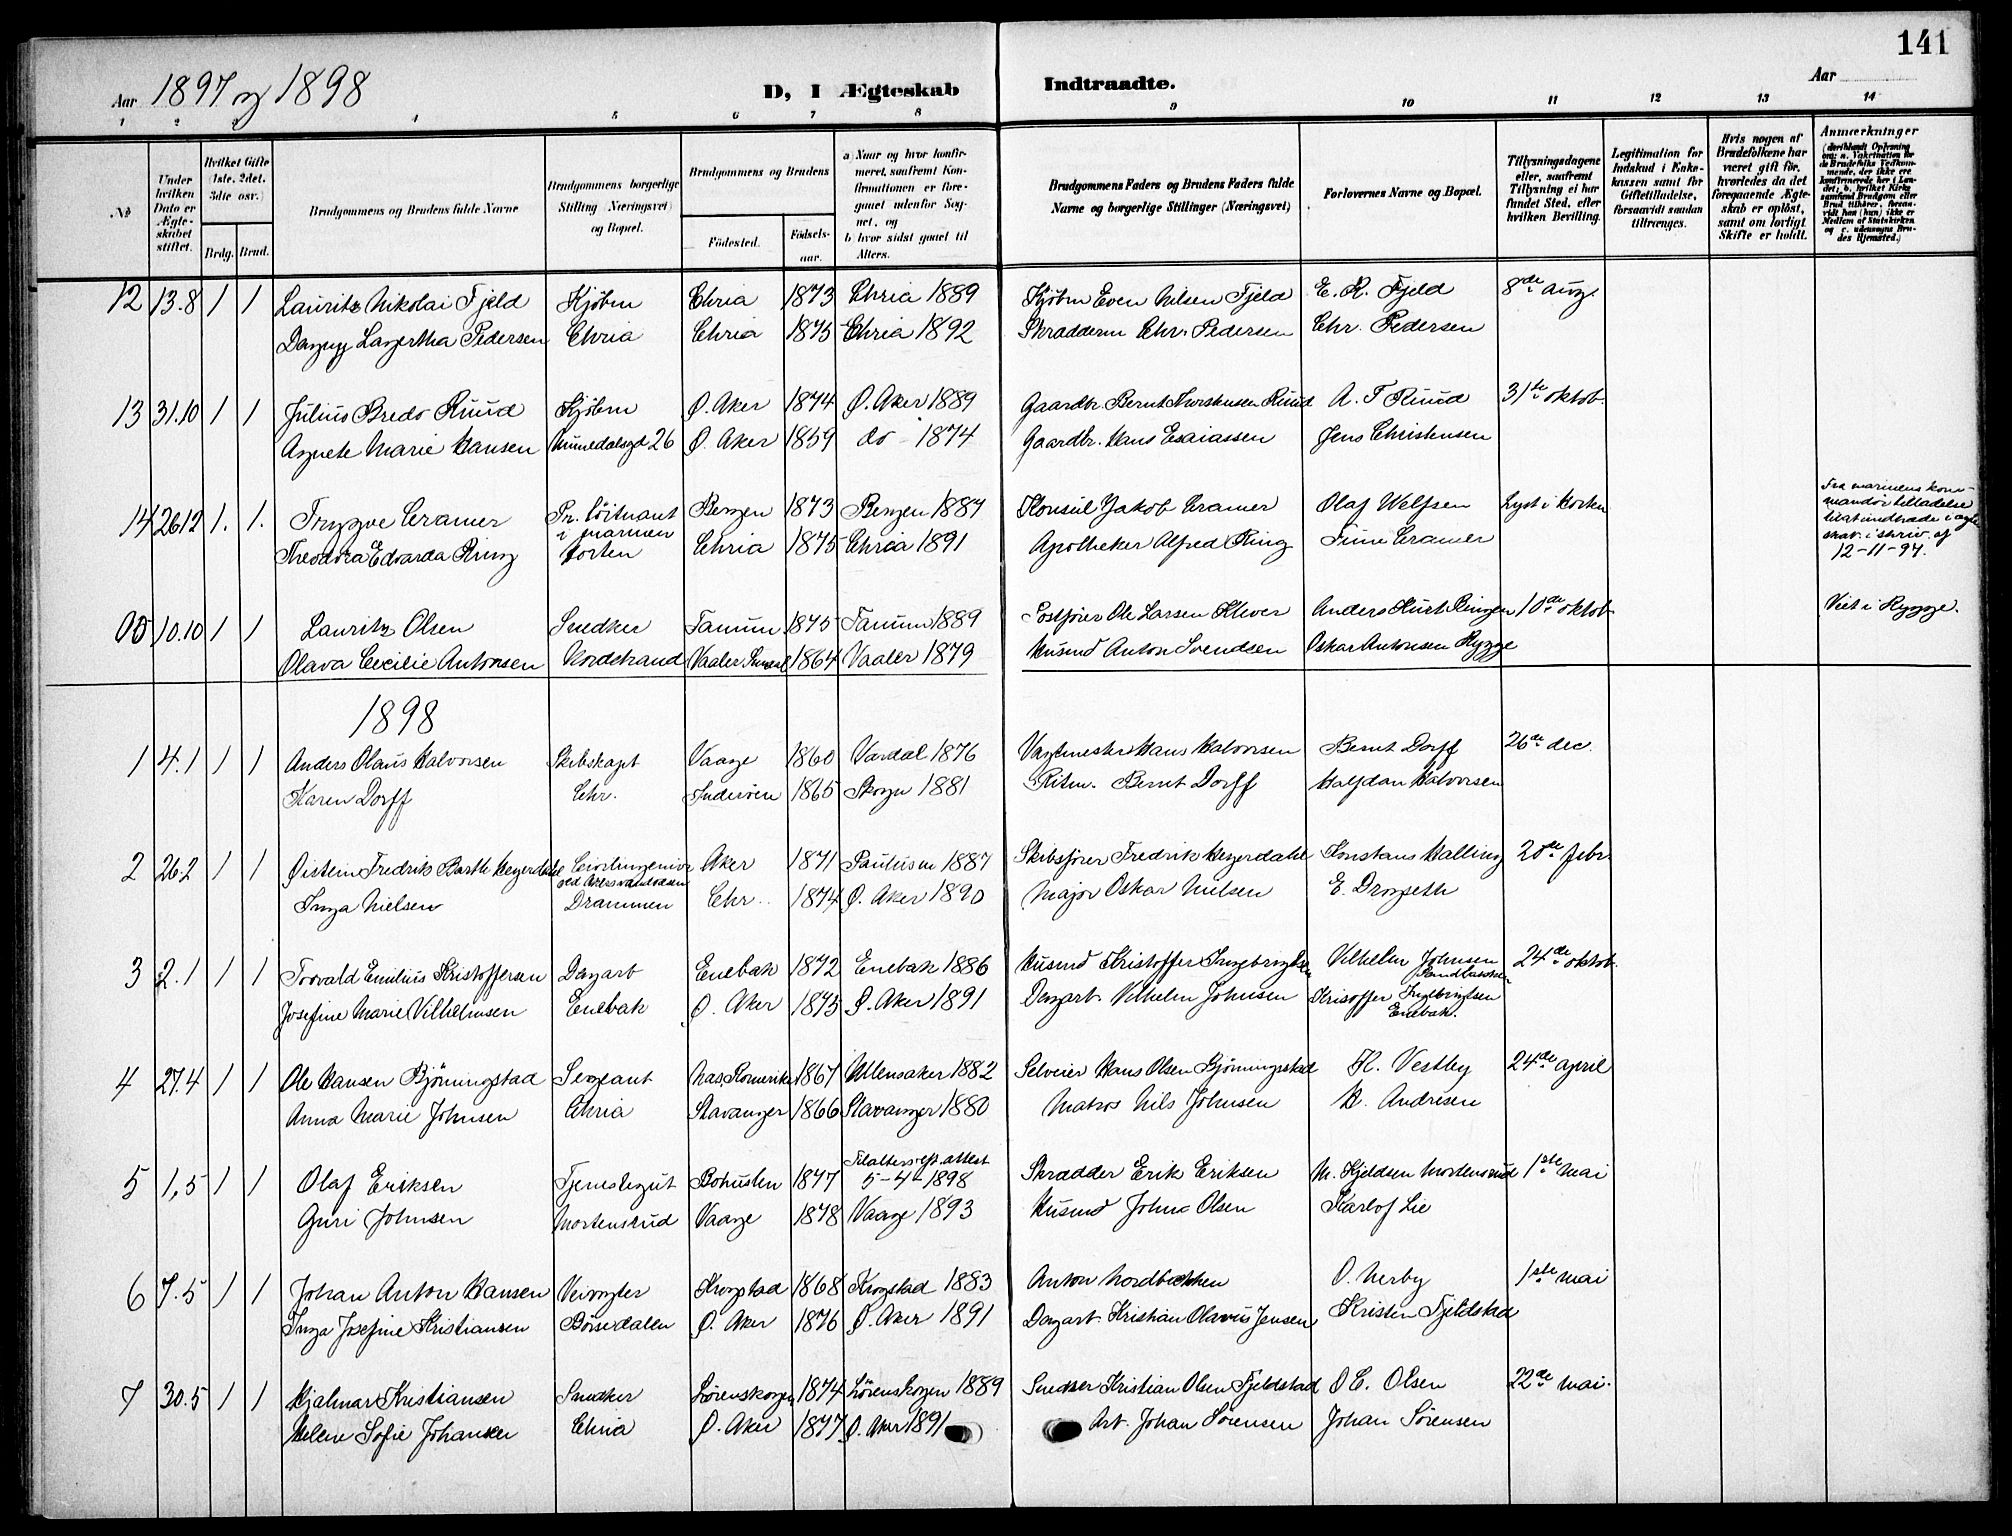 141
Aar 1897 og 1898 D, I Ægteskab Indtraadte. Aar
1 2 3 4 5 6 7 8 9 10 11 12 13 14
№
Under hvilken Dato er Ægteskabet stiftet.
Hvilket Gifte (1ste, 2det, 3die osv.)
Brdg. Brud.
Brudgommens og Brudens fulde Navne
Brudgommens borgerlige Stilling (Næringsvei) og Bopæl.
Brudgommens og Brudens
Fødested.
Fødselsaar.
a) Naar og hvor konfirmeret, saafremt Konfirmationen er foregaaet udenfor Sognet, og
b) hvor sidst gaaet til Alters.
Brudgommens Faders og Brudens Faders fulde Navne og borgerlige Stillinger (Næringsvei)
Forlovernes Navne og Bopæl.
Tillysningsdagene eller, saafremt Tillysning ei har fundet Sted, efter hvilken Bevilling.
Legitimation for Indskud i Enkekassen samt for Giftetilladelse, forsaavidt saadan tiltrænges.
Hvis nogen af Brudefolkene har været gift før, hvorledes da det foregaaende Ægteskab er opløst, samt om lovligt Skifte er holdt.
Anmærkninger
12 13.8 1 1 Lauritz Nikolai Fjeld Kjøbm Chria 1873 Chria 1889 Kjøbm Even Nilsen Fjeld E. R. Fjeld 8de aug.
Dagny Lagertha Pedersen Chria Chria 1875 Chria 1892 Skrædderm Chr. Pedersen Chr. Pedersen
13 31.10 1 1 Julius Bredo Ruud Kjøbm Ø. Aker 1874 Ø. Aker 1889 Gaardbr. Bernt Ruud A. T Ruud 31te oktob.
Agnete Marie Hansen Numedalsgd 26 Ø. Aker 1859 do 1874 Gaardbr. Hans Esaiassen Jens Christensen
14 26 12 1. 1. Trygve Cramer Pr. löitnant Bergen 1873 Bergen 1887 Konsul Jakob Cramer Olaf Welfsen Lyst i Horten
i marinen
Theodora Edvarda Ring Horten Chria 1875 Chria 1891 Apotheker Alfred Ring Cramer
Fra marinens kommandør tilladelse
til at indtræde i ægte
skab i skriv. af
12-11-97.
00 10.10 1 1 Lauritz Olsen Snedker Tanum 1875 Tanum 1889 Postfører Ole Larsen Klever Anders Kurt Ringen 10de oktob Viet i Rygge.
Olava Cecilie Antonsen Nordstrand Vaaler 1864 Vaaler 1879 Husmd Anton Svendsen Oskar Antonsen Rygge
1898
1 4.1 1 1 Anders Olaus Halvorsen Skibskapt Vaage 1860 Vardal 1876 Vagtmester Hans Halvorsen Bernt Dorff 26de dec.
Karen Dorff Chr. Inderöen 1865 Skogn 1881 Ritm. Bernt Dorff Halfdan Halvorsen
2 26.2 1 1 Øistein Fredrik Barth Heyerdahl Civilingeniør Aker 1871 Paulus m 1887 Skibsfører Fredrik Heyerdahl Konstans Halling 20de febr
ved
Inga Nielsen Drammen Chr. 1874 Ø. Aker 1890 Major Oskar Nielsen E. Drogseth
3 2.1 1 1 Torvald Emilius Kristoffersen Dagarb Enebak 1872 Enebak 1886 Husmd Kristoffer Ingebrigtsen Vilhelm Johnsen 24de oktob.
Josefine Marie Vilhelmsen Enebak Ø. Aker 1875 Ø. Aker 1891 Dagarb. Vilhelm Johnsen Kristoffer Ingebrigtsen
Enebak.
4 27.4 1 1 Ole Hansen Bjönningstad Sergeant Nas, Romerike 1867 Ullensaker 1882 Selveier Hans Olsen Bjönningstad K. Vestby 24de april
Anna Marie Johnsen Chria Stavanger 1866 Stavanger 1880 Matros Nils Johnsen H. Andresen
5 1.5 1 1 Olaf Eriksen Tjenestegut Bohuslen 1877 Tilalters eft. attest
5-4 1898 Skrædder Erik Eriksen M. Kjeldsen Mortensrud 1ste mai
Guri Johnsen Mortensrud Vaage 1878 Vaage 1893 Husmd John Olsen Karlof Lie
6 7.5 1 1 Johan Anton Hansen Veivogter Krogstad 1868 Krogstad 1883 Anton Nordbækken O. Nerby 1ste mai
Inga Josefine Kristiansen Börsedalen Ø. Aker 1876 Ø. Aker 1891 Dagarb. Kristian Olavus Jensen Kristen Fjeldstad
7 30.5 1 1 Hjalmar Kristiansen Snedker Lörenskogen 1874 Lörenskogen 1889 Snedker Kristian Olsen Fjeldstad O C. Olsen 22de mai.
Helene Sofie Johansen Chria Ø. Aker 1877 Ø. Aker 1891 Arb. Johan Sörensen Johan Sörensen